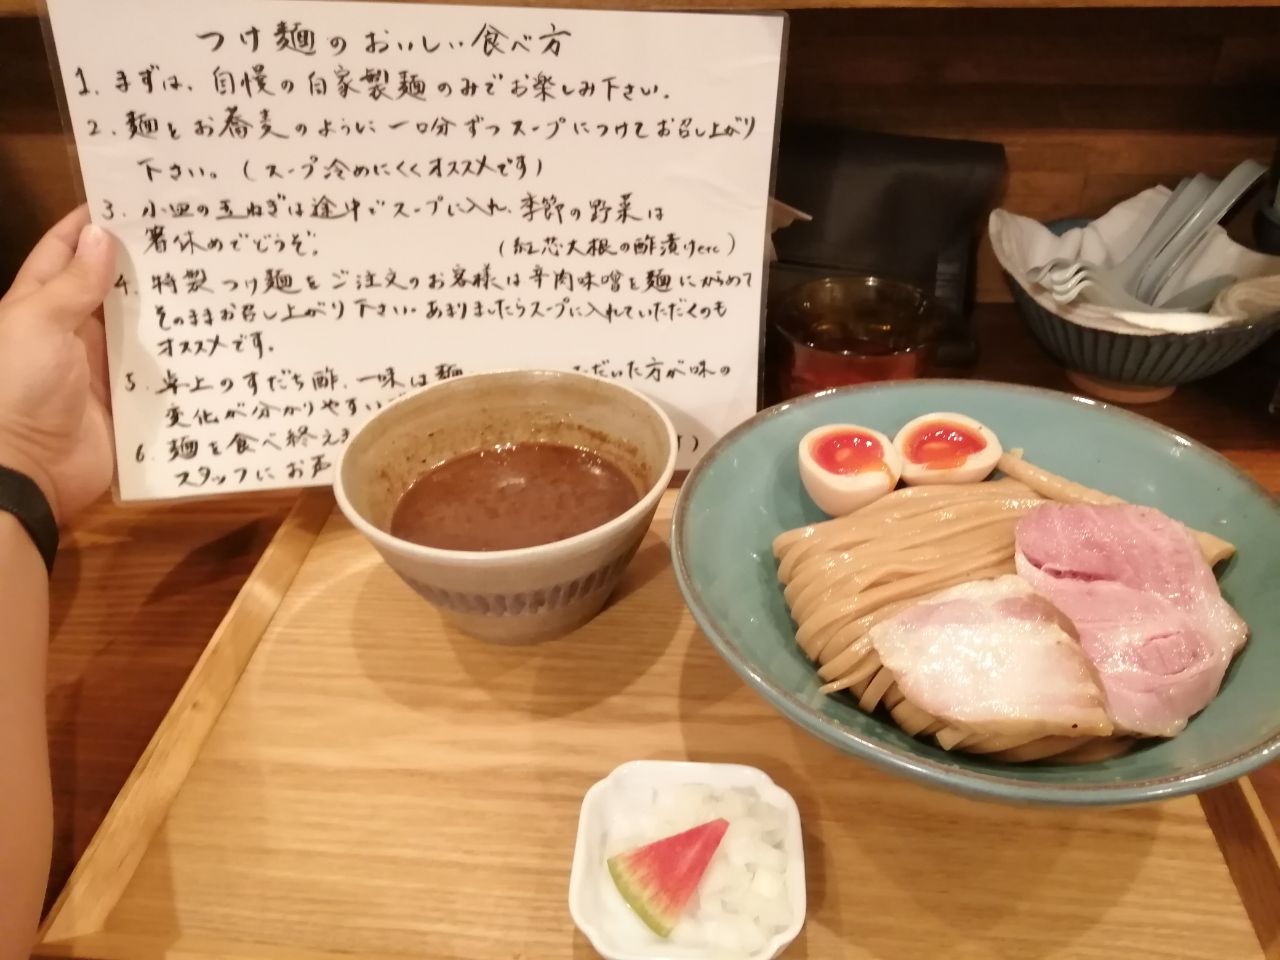 つけ麺のおいしい食べ方
1. まずは、自慢の自家製麺のみでお楽しみ下さい.
2. 麺をお蕎麦のように一口分ずつスープにつけてお召し上がり
下さい。(スープ冷めにくくオススメです)
3. 小皿の玉ねぎは途中でスープに入れ、季節の野菜は
箸休めでどうぞ。 (紅芯大根の酢漬けetc)
4. 特製つけ麺をご注文のお客様は辛肉味噌を麺にからめて
そのままお召し上がり下さい。あまりましたらスープに入れていただくのも
オススメです。
5. 卓上のすだち酢、一味は麺 ただいた方が味の
変化が分かりやすい
6. 麺を食べ終え
スタッフにお声